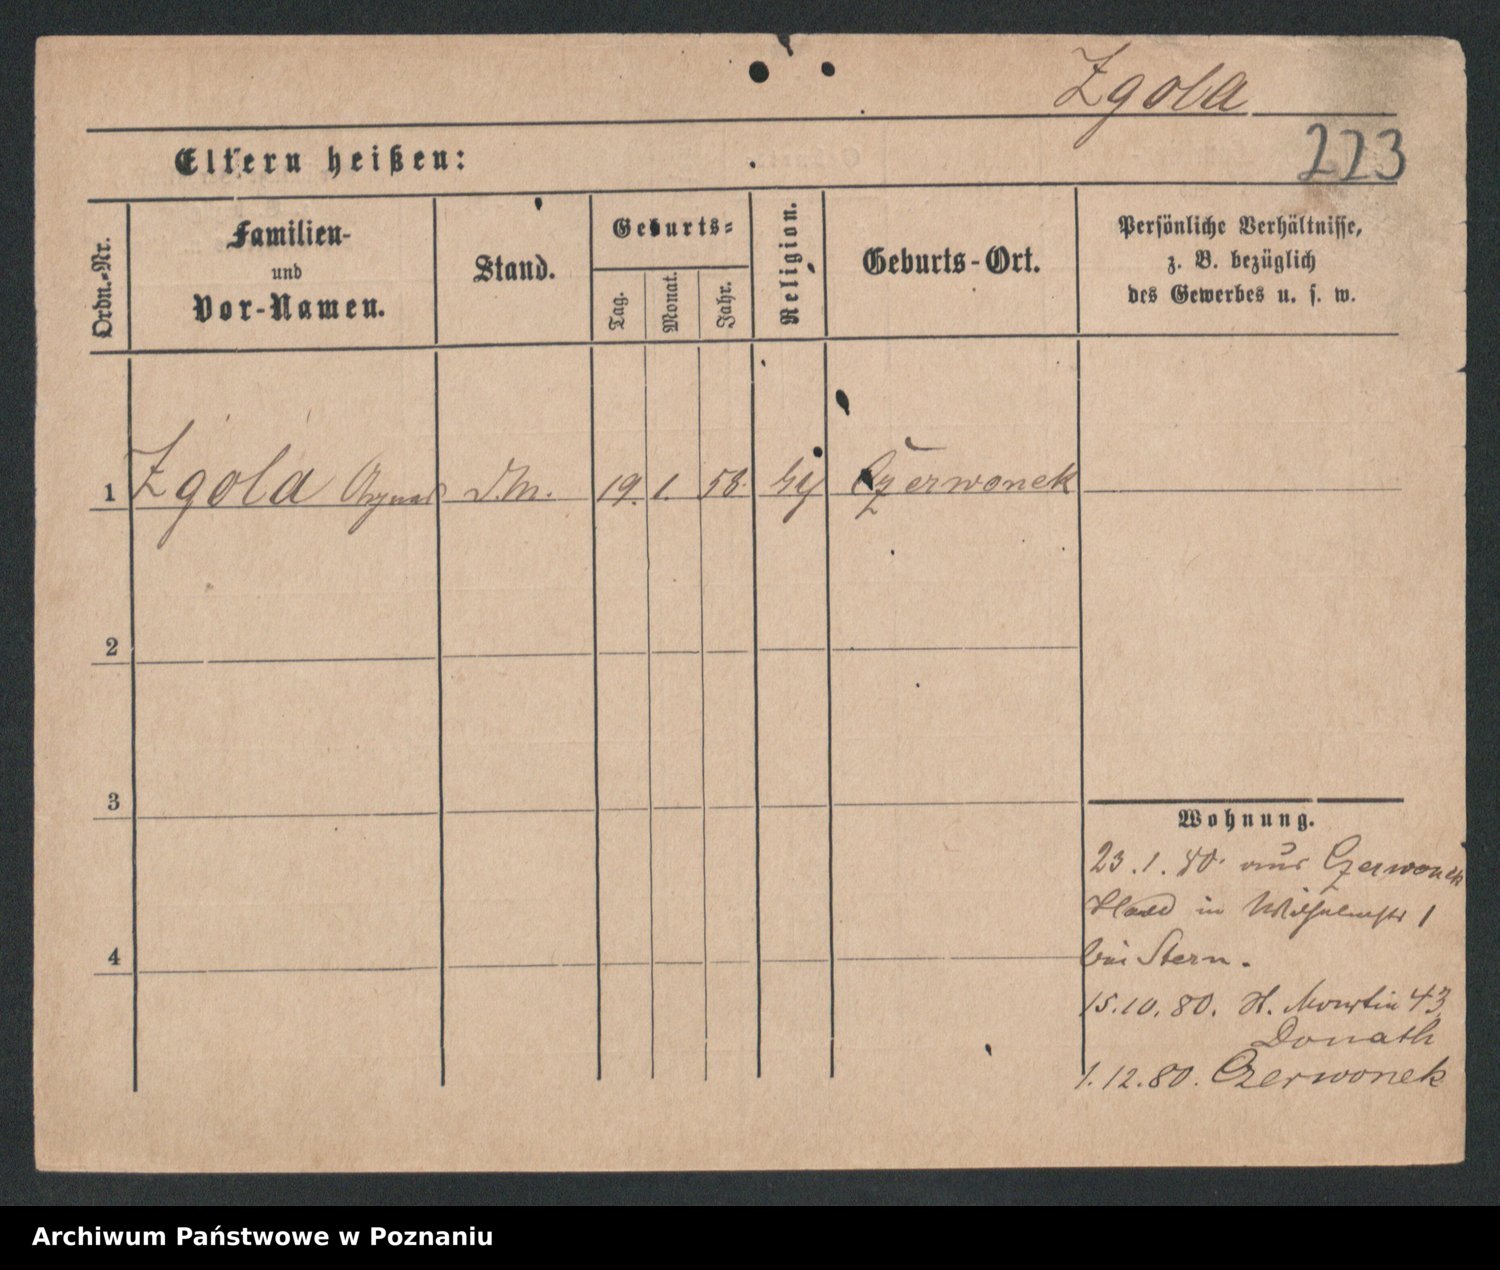 Zgola
223
Eltern heißen:
Ordn.-Nr.
Familien-
und
Vor-Namen.
Stand.
Geburts-
Tag.
Monat.
Jahr.
Religion.
Geburts-Ort.
Persönliche Verhältnisse,
z. B. bezüglich
des Gewerbes u. s. w.
1 Zgola D.M. 19. 1. 58. Czerwonek
2
3
4
Wohnung.
23.1.80. aus Czerwonek
in Wilhelmstr 1
bei Stern.
15.10.80. St. Martin 43
Donath
1.12.80. Czerwonek
Archiwum Państwowe w Poznaniu